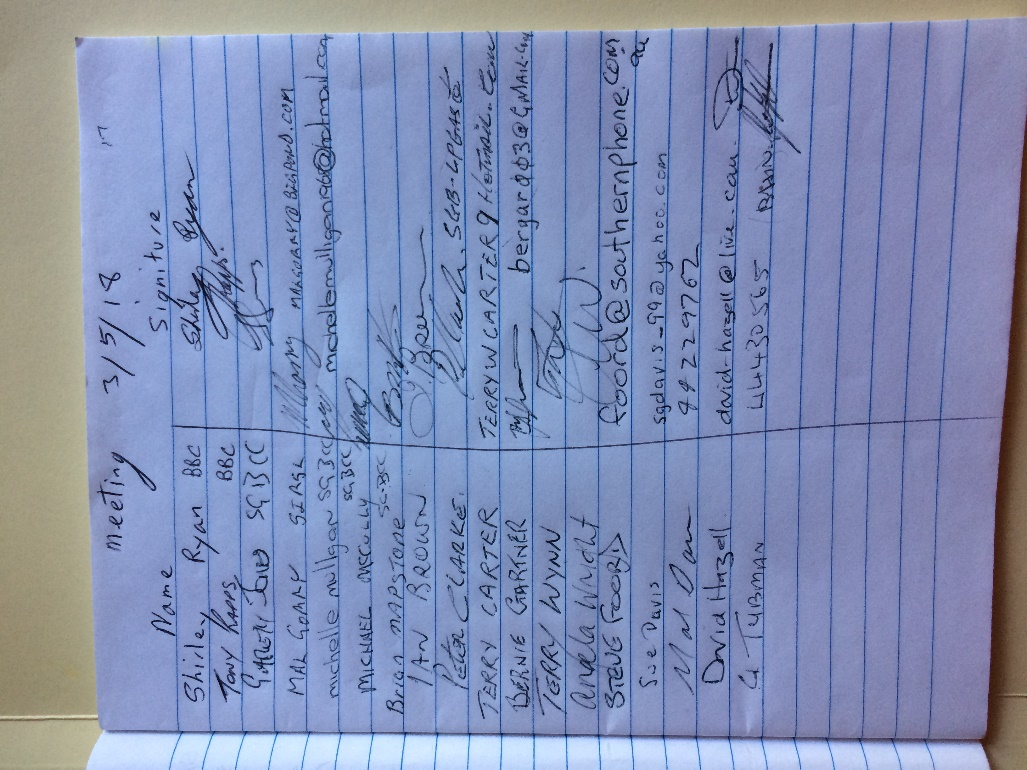 meeting 3/5/18
Name Signiture
Shirley Ryan BBC Shirley Ryan
Tony Rapps BBC
Gareth Jones SGBCC
MAL GORMY MALGORMY@BIGPOND.COM
michelle mulligan SGBCC
MICHAEL MCCULLY SGBCC
Brian MAPSTONE SGBCC
IAN BROWN
PETER CLARKE.
TERRY CARTER TERRYWCARTER9 Hotmail.com
BERNIE GARTNER bergar003@GMAIL.com
TERRY WYNN
Angela Wright
STEVE FOORD foord@southernphone.com.au
Sue Davis sgdavis-99@yahoo.com
Mal 44229762
David Hazell david-hazell@live.com.
G TUBMAN 44430565 BRAIN